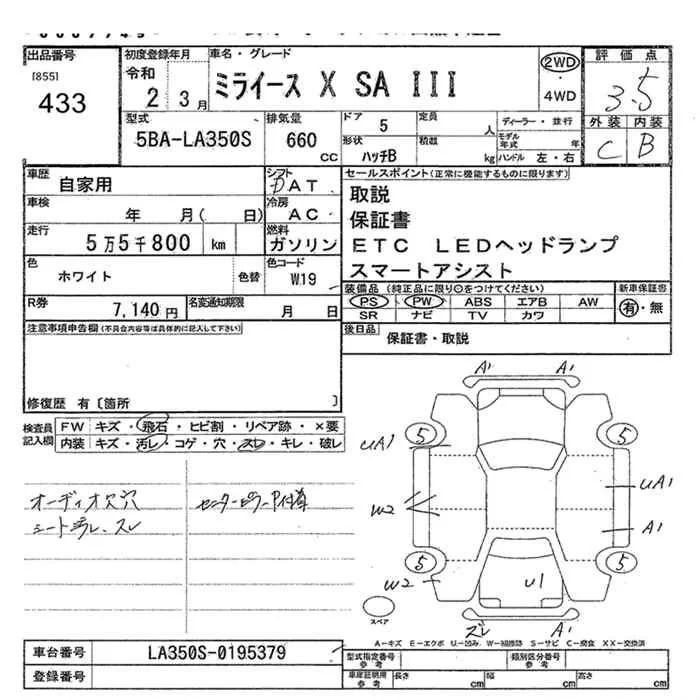 出品番号 初度登録年月 車名・グレード 2WD 評価点
[855] 令和 ミライース X SA III ・ 3.5
433 2 3月 4WD 外装 内装
型式 排気量 ドア 5 定員 人 ディーラー・並行 C B
5BA-LA350S 660 cc 形状 ハッチB 積載 kg モデル年式 年 ハンドル 左・右
車歴 自家用 シフト DAT セールスポイント(正常に機能するものに限ります)
車検 年 月( 日) 冷房 AC 取説
走行 5万5千800 km 燃料 ガソリン 保証書
色 ホワイト 色替 色コード W19 ETC LEDヘッドランプ
スマートアシスト
R券 7,140円 名変通知期限 月 日 装備品(純正品に限り○をつけてください) 新車保証書
PS PW ABS エアB AW 有・無
SR ナビ TV カワ
注意事項申告欄(不具合内容等は具体的に記入して下さい) 後日品 保証書・取説
修復歴 有〔箇所 〕
検査員記入欄 FW キズ・飛石・ヒビ割・リペア跡・×要
内装 キズ・汚レ・コゲ・穴・スレ・キレ・破レ
オーディオ欠穴
シート汚レ、スレ
A1 A1
5 5
UA1
UA1
W2
A1
5 5
W2 U1
スペア
ズレ A1
A-キズ E-エクボ U-凹み W-補修跡 S-サビ C-腐食 XX-交換済
車台番号 LA350S-0195379 型式指定番号 参考 類別区分番号 参考
登録番号 車庫証明用 参考 長さ cm 幅 cm 高さ cm